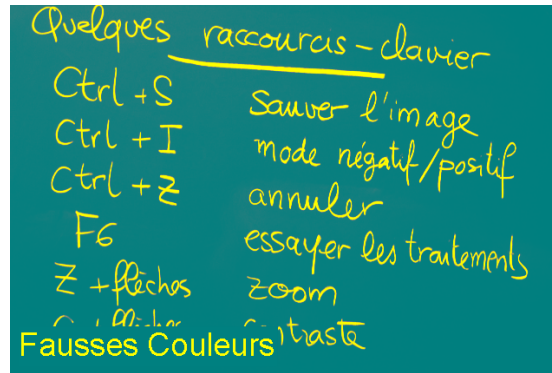 Quelques raccourcis-clavier
Ctrl + S sauver l'image
Ctrl + I mode négatif/positif
Ctrl + Z annuler
F6 essayer les traitements
Z + flèches zoom
Fausses Couleurs